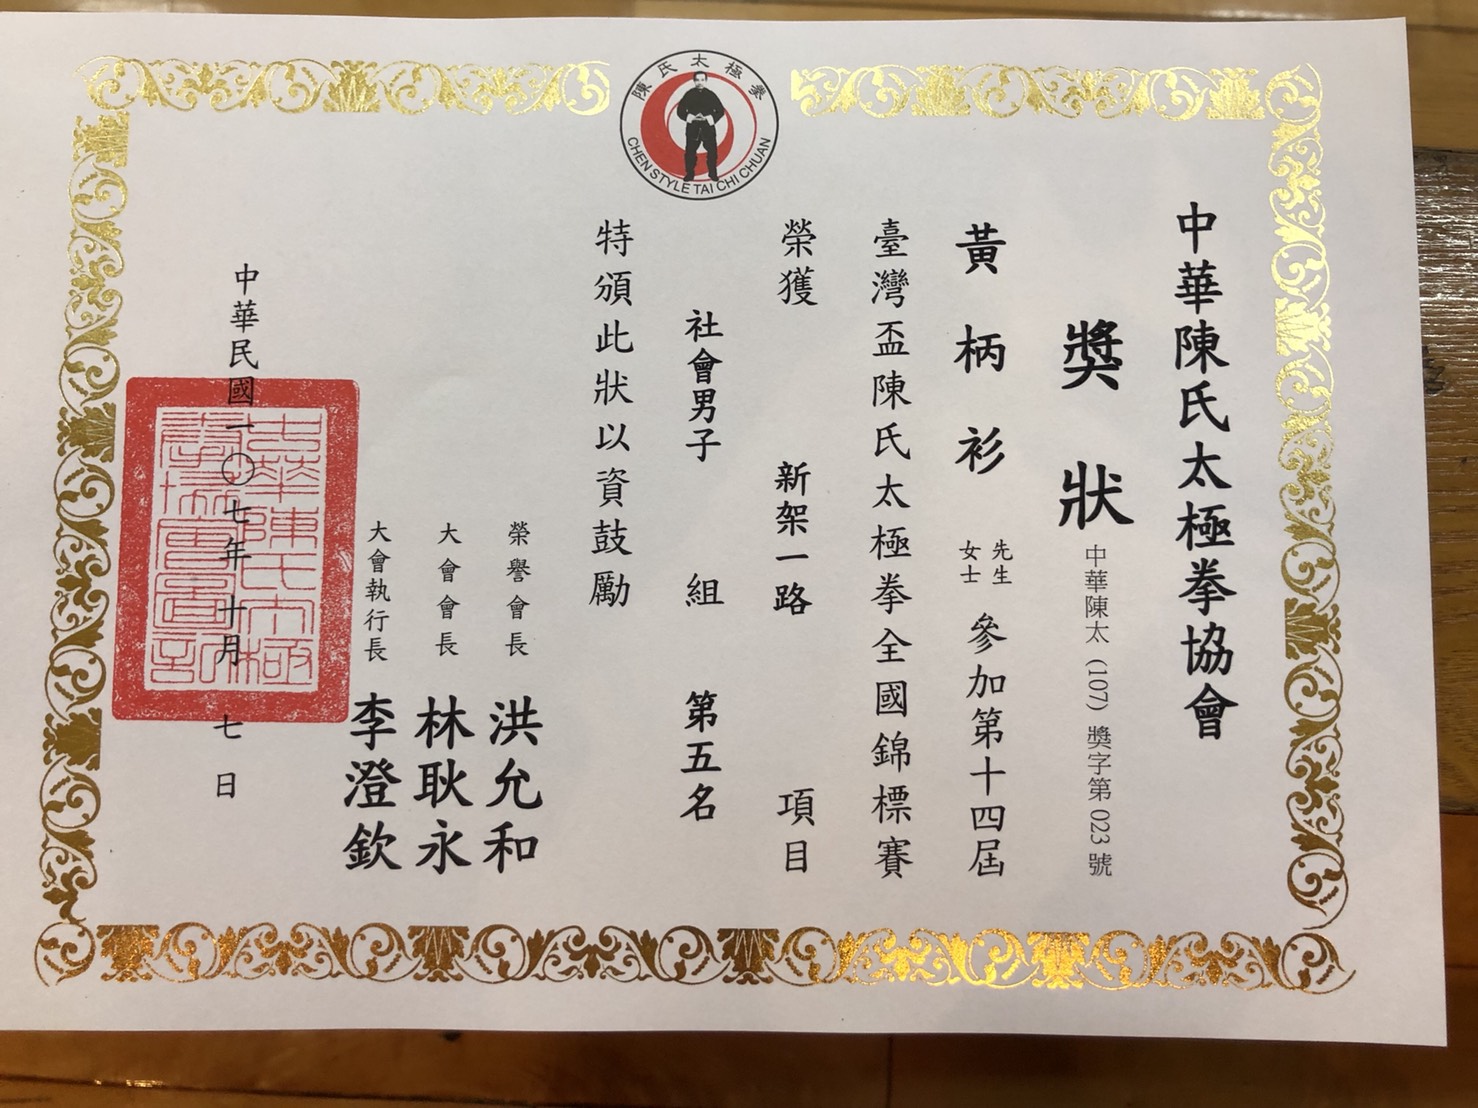 陳氏太極拳
CHEN STYLE TAI CHI CHUAN
中華陳氏太極拳協會
獎狀
中華陳太 (107) 獎字第 023 號
黃柄衫 先生 女士 參加第十四屆
臺灣盃陳氏太極拳全國錦標賽
榮獲 新架一路 項目
社會男子 組 第五名
特頒此狀以資鼓勵
榮譽會長 洪允和
大會會長 林耿永
大會執行長 李澄欽
中華民國一〇七年十月七日
中華陳氏太極拳協會圖記